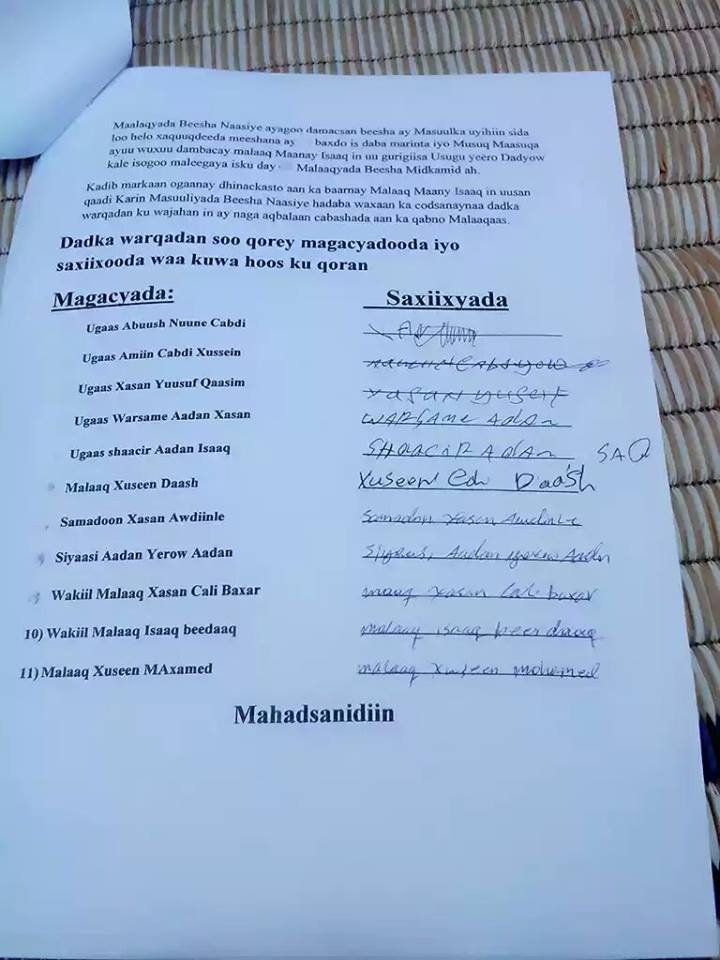 Maalaqyada Beesha Naasiye ayagoo damacsan beesha ay Masuulka uyihiin sida
loo helo xaquuqdeeda meeshana ay baxdo is daba marinta iyo Musuq Maasuqa
ayuu wuxuu dambacay malaaq Maanay Isaaq in uu gurigiisa Usugu yeero Dadyow
kale isogoo maleegaya isku day Malaaqyada Beesha Midkamid ah.
Kadib markaan ogaanay dhinackasto aan ka baarnay Malaaq Maany Isaaq in uusan
qaadi Karin Masuuliyada Beesha Naasiye hadaba waxaan ka codsanaynaa dadka
warqadan ku wajahan in ay naga aqbalaan cabashada aan ka qabno Malaaqaas.
Dadka warqadan soo qorey magacyadooda iyo
saxiixooda waa kuwa hoos ku qoran
Magacyada: Saxiixyada
Ugaas Abuush Nuune Cabdi
Ugaas Amiin Cabdi Xussein
Ugaas Xasan Yuusuf Qaasim xasan yuserf
Ugaas Warsame Aadan Xasan WARSAME Adan
Ugaas shaacir Aadan Isaaq SHAACIR Adan SAQ
Malaaq Xuseen Daash Xuseen Daash
Samadoon Xasan Awdiinle Samadon Xasan Awdinle
Siyaasi Aadan Yerow Aadan Aadan yerow Aadan
Wakiil Malaaq Xasan Cali Baxar xasan Cali baxar
10) Wakiil Malaaq Isaaq beedaaq malaaq isaaq beerdaaq
11) Malaaq Xuseen MAxamed malaaq xuseen mohemed
Mahadsanidiin